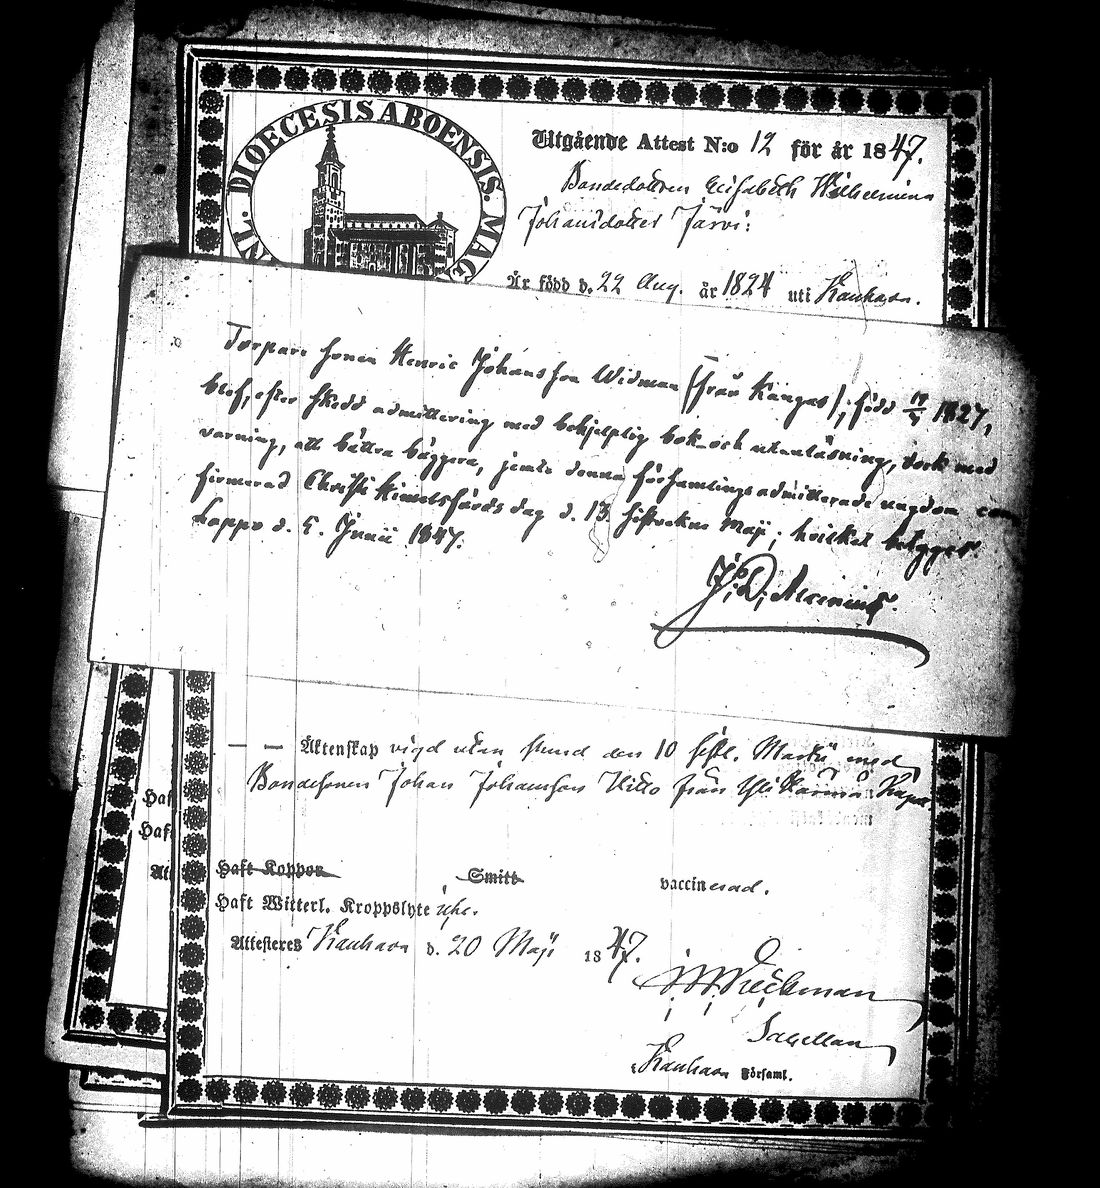 DIOECESIS ABOENSIS. MAG
Utgående Attest N:o 12 för år 1847.
Bondedottren Elisabeth Wilhelmina
Johansdotter Järvi:
Är född d. 22 Aug. år 1824 uti Kauhava.
Torpare sonen Henric Johansson Widman (från Kangas), född 17/5 1827,
blef, efter skedd admittering med behjelplig bok- och utanläsning, dock med
varning, att bättra bäggera, jemte denna församlings admitterade ungdom con-
firmerad Christi Himmelsfärds dag d. 13 sistvekne Maji; hvilket betygger
Lappo d. 5 Junii 1847.
J. D. Alcenius.
— — Äktenskap vigd utan stund den 10 sistl. Martii med
Bondesonen Johan Johansson Hitto från Yli Kaxxx Kape
Haf
Haf
At
Haft Koppor Smitt vaccinerad.
Haft Witterl. Kroppslyte
Attesteres Kauhava d. 20 Maji 1847.
Sacellan
Kauhava Församl.